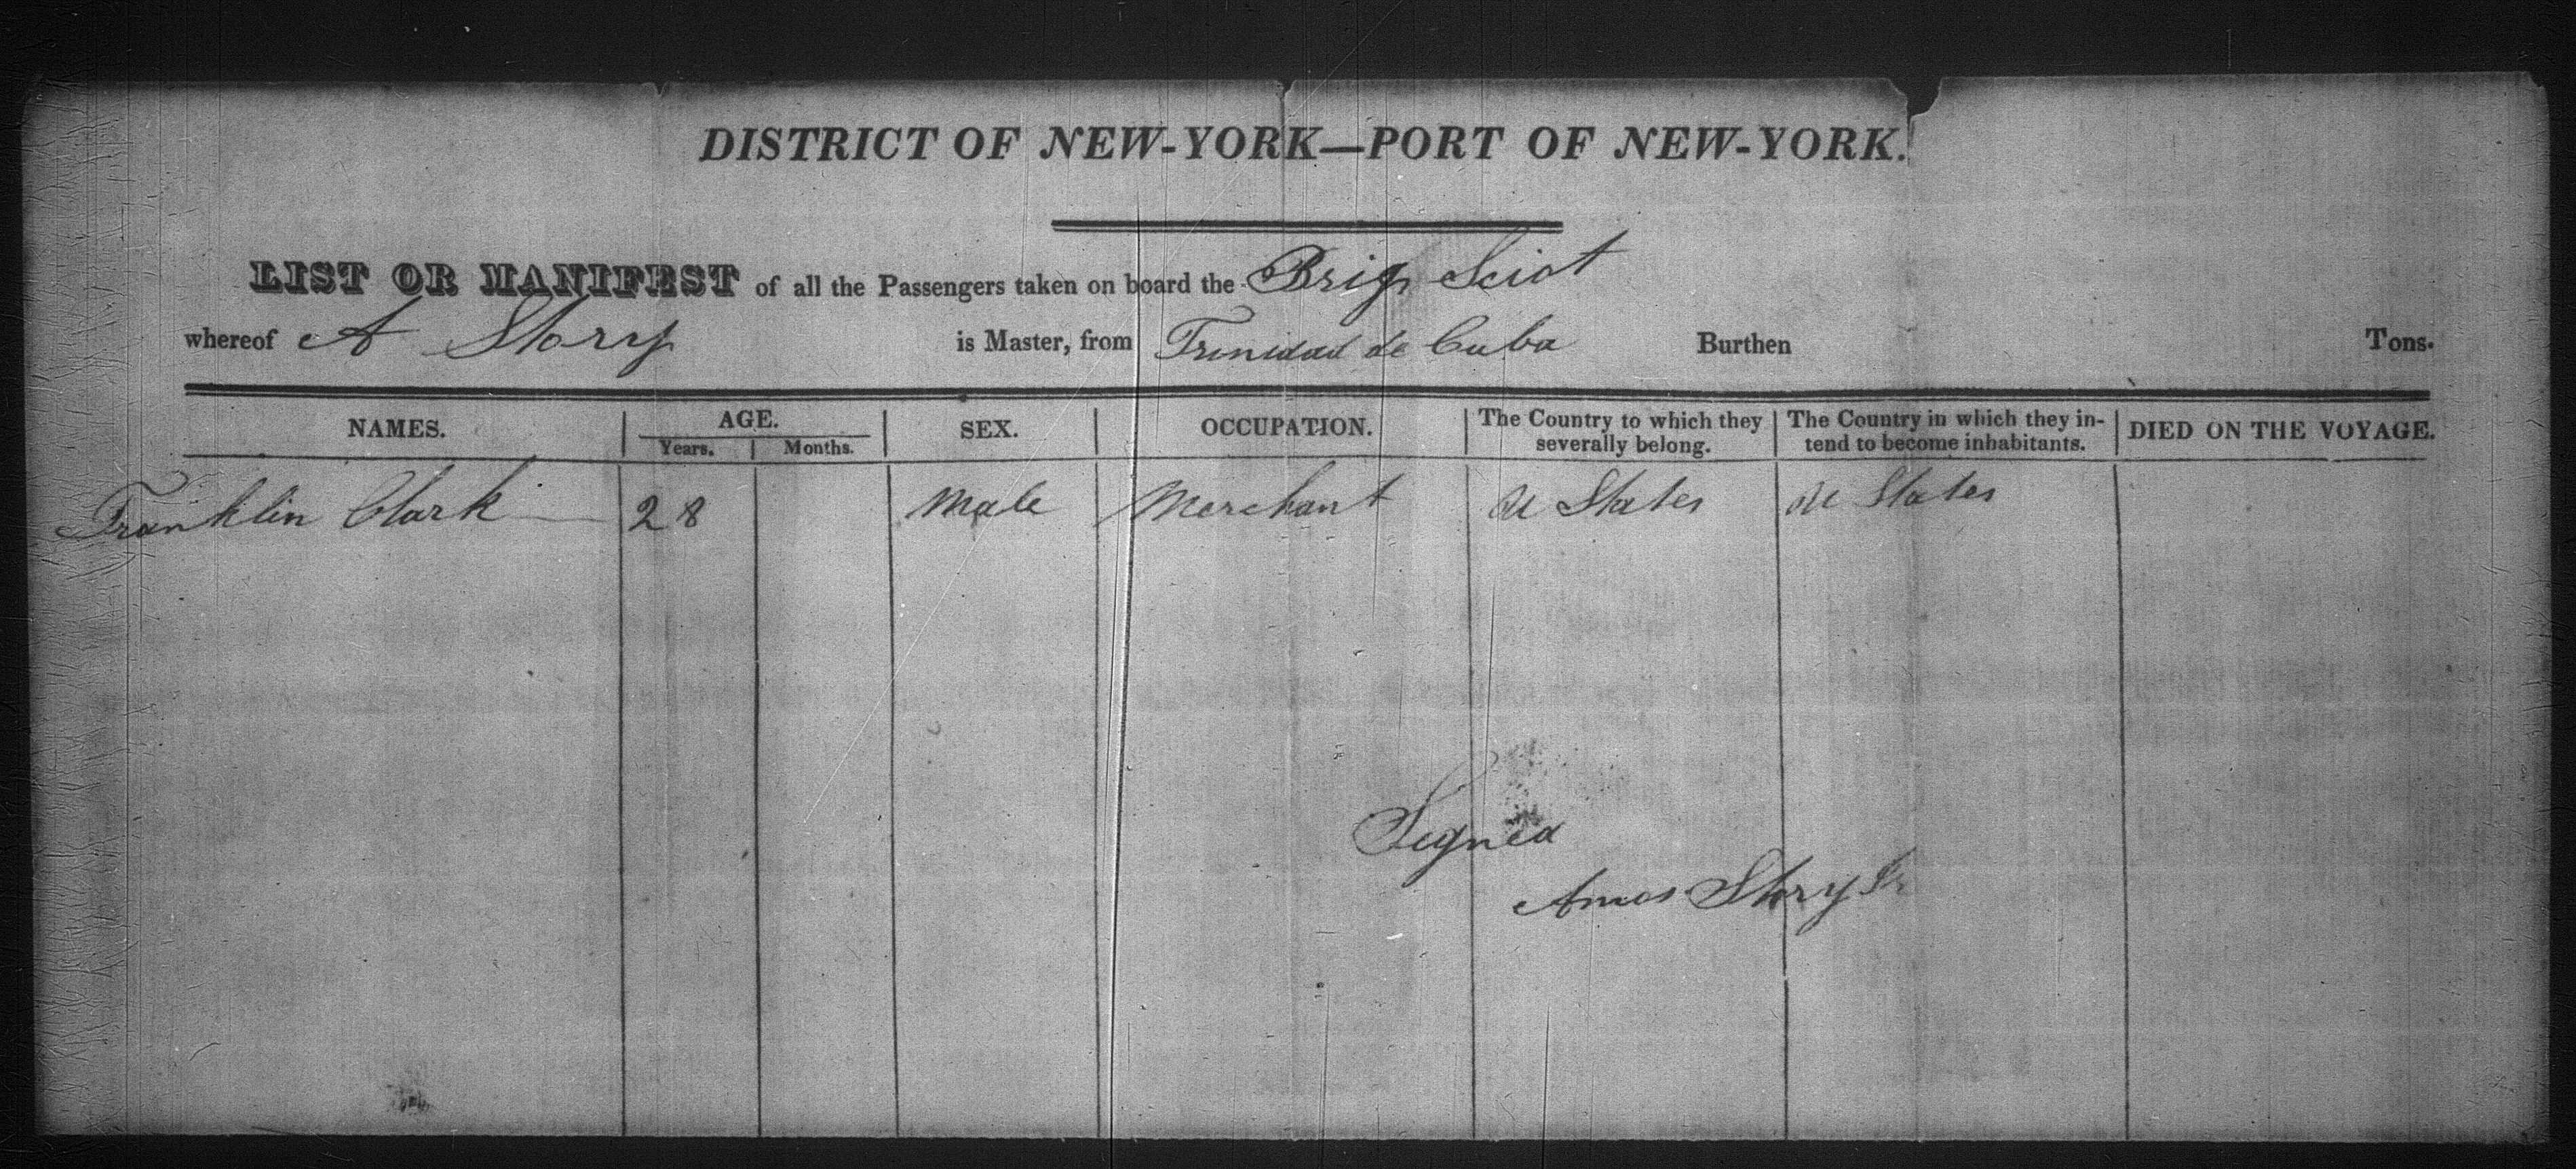 DISTRICT OF NEW-YORK—PORT OF NEW-YORK.
LIST OR MANIFEST of all the Passengers taken on board the Brig Sciot
whereof A Story is Master, from Trinidad de Cuba Burthen Tons.
NAMES. AGE. Years. Months. SEX. OCCUPATION. The Country to which they severally belong. The Country in which they intend to become inhabitants. DIED ON THE VOYAGE.
Franklin Clark 28 Male Merchant U States U States
Signed
Amos Story Jr